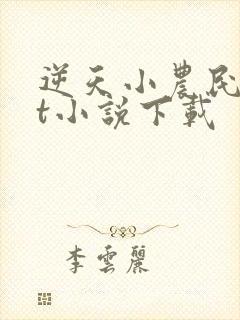 逆天小農民
t小說下載
李雲麗